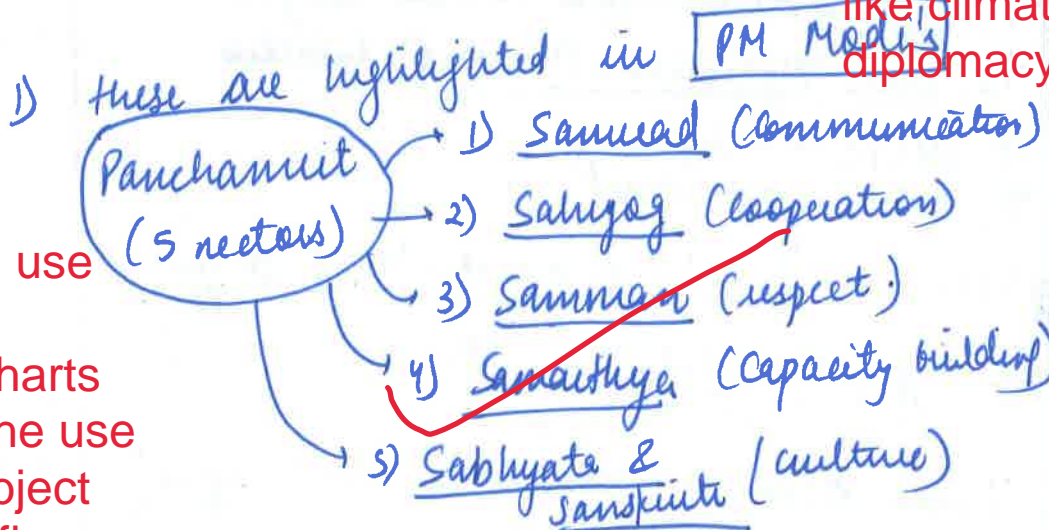 like climat
diplomacy
1) these are highlighted in PM Modi's
Panchamrit
(5 nectors)
1) Samvad (Communication)
2) Sahyog (Cooperation)
3) Samman (respect.)
4) Samarthya (Capacity building)
5) Sabhyata &
Sanskriti (culture)
use
harts
ne use
bject